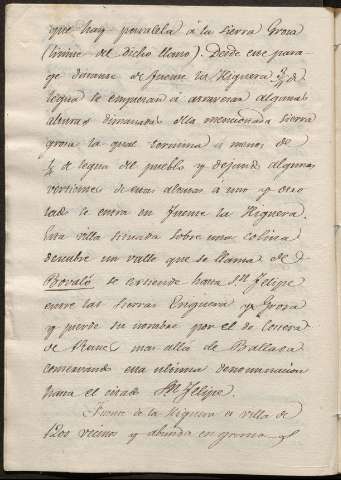 que hay paralela á la sierra Grosa
(limite del dicho llano). Desde ese para-
ge distante de Fuente la Higuera de
legua se empiezan á atravesar algunas
alturas dimanadas de la mencionada sierra
grosa la qual termina á menos de
de legua del pueblo y dejando algunas
vertientes de estas alturas a uno y otro
lado se entra en Fuente la Higuera.
Esta villa situada sobre una colina
descubre un valle que se llama de
se extiende hasta Sn. Felipe
entre las sierras Enguera y Grosa
y pierde su nombre por el de
de mas allá de Ballada
comenzando esta ultima denominacion
hasta el citado Sn. Felipe.
Fuente de la Higuera es villa de
1200 vecinos y abunda en granos y